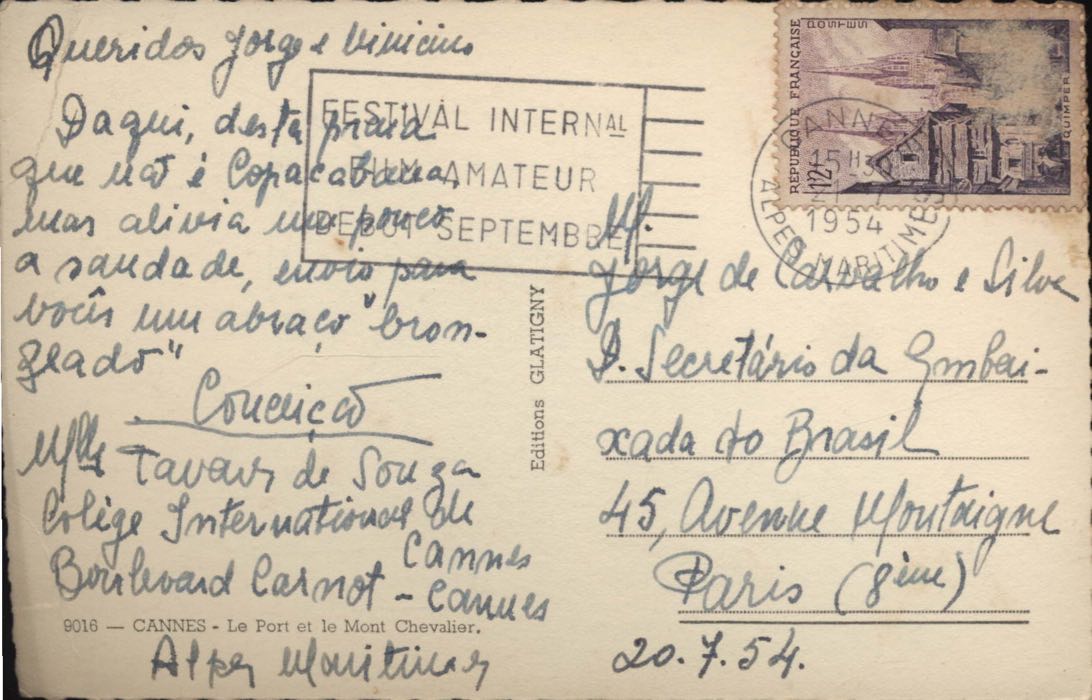 Queridos Jorge e Vinicius
Daqui, desta praia
que não é Copacabana,
mas alivia um pouco
a saudade, envio para
vocês um abraço "bron-
zeado"
Conceição
Mlle Tavares de Souza
Colège International de
Cannes
Boulevard Carnot - Cannes
9016 — CANNES - Le Port et le Mont Chevalier.
Alpes Maritimes
FESTIVAL INTERNAL
FILM AMATEUR
DEBUT SEPTEMBRE
Editions GLATIGNY
RÉPUBLIQUE FRANÇAISE
POSTES
QUIMPER
12F
CANNES
1954
ALPES MARITIMES
M.
Jorge de Carvalho e Silva
D. Secretário da Embai-
xada do Brasil
45, Avenue Montaigne
Paris (8ème)
20.7.54.